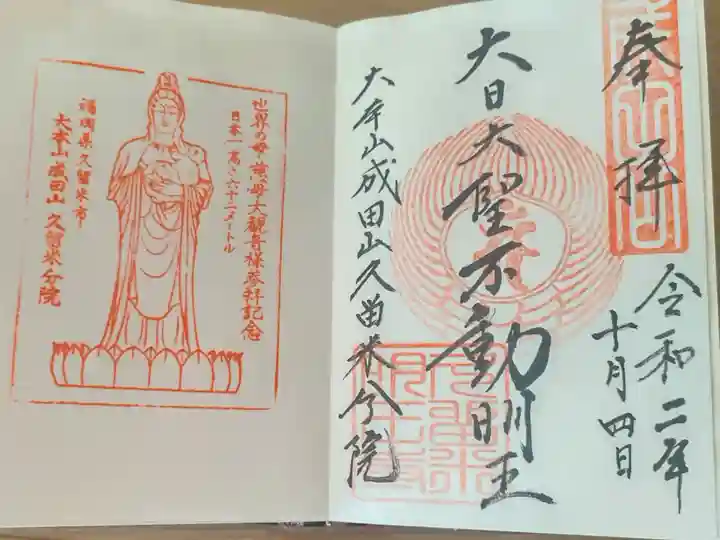 奉拝
令和二年
十月四日
大日大聖不動明王
大本山成田山久留米分院
世界の母慈母大観音様参拝記念
日本一高さ六十二メートル
福岡県久留米市
大本山成田山久留米分院